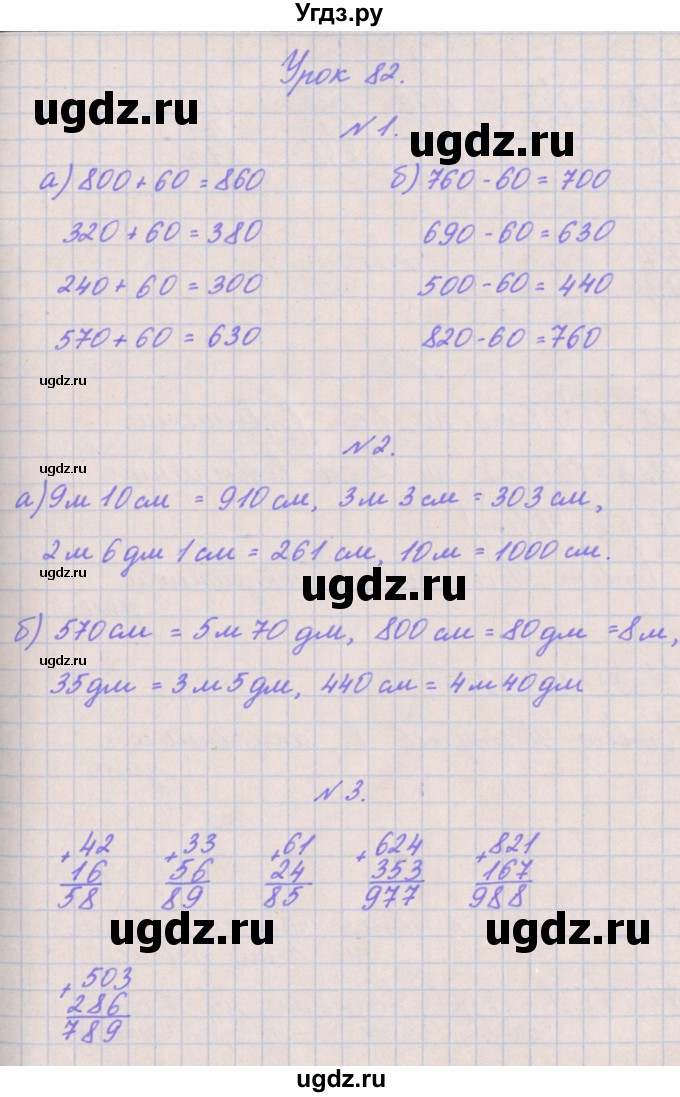 Угдз.ру
Урок 82.
ugdz.ru
№ 1.
ugdz.ru
а) 800 + 60 = 860
б) 760 - 60 = 700
320 + 60 = 380
690 - 60 = 630
240 + 60 = 300
500 - 60 = 440
570 + 60 = 630
820 - 60 = 760
ugdz.ru
№ 2.
ugdz.ru
а) 9 м 10 см = 910 см, 3 м 3 см = 303 см,
2 м 6 дм 1 см = 261 см, 10 м = 1000 см.
ugdz.ru
ugdz.ru
б) 570 см = 5 м 70 дм, 800 см = 80 дм = 8 м,
ugdz.ru
35 дм = 3 м 5 дм, 440 см = 4 м 40 дм
№ 3.
+ 42 + 33 + 61 + 624 + 821
16 56 24 353 167
58 89 85 977 988
ugdz.ru ugdz.ru
+ 503
286
789
ugdz.ru